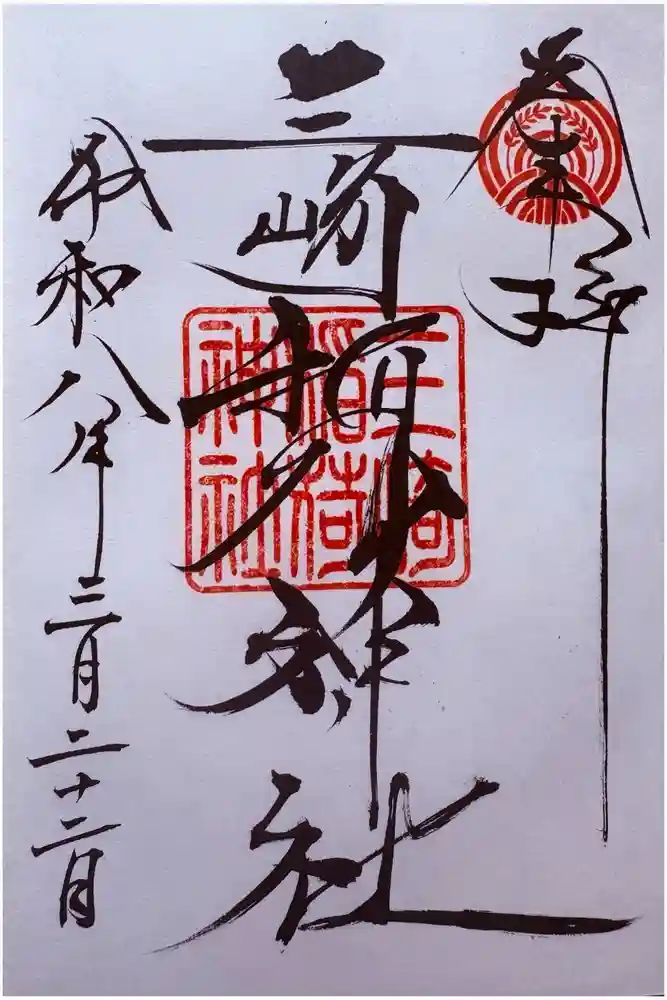 奉拝
三崎稲荷神社
三崎
稲荷
神社
令和八年三月二十二日